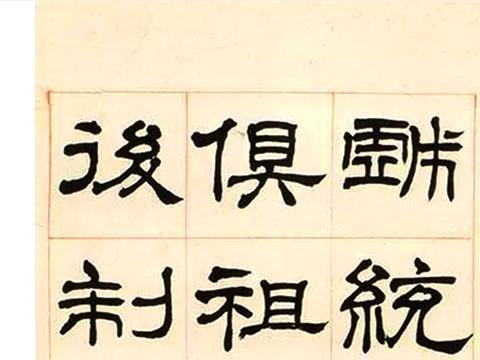 統
俱祖
後制